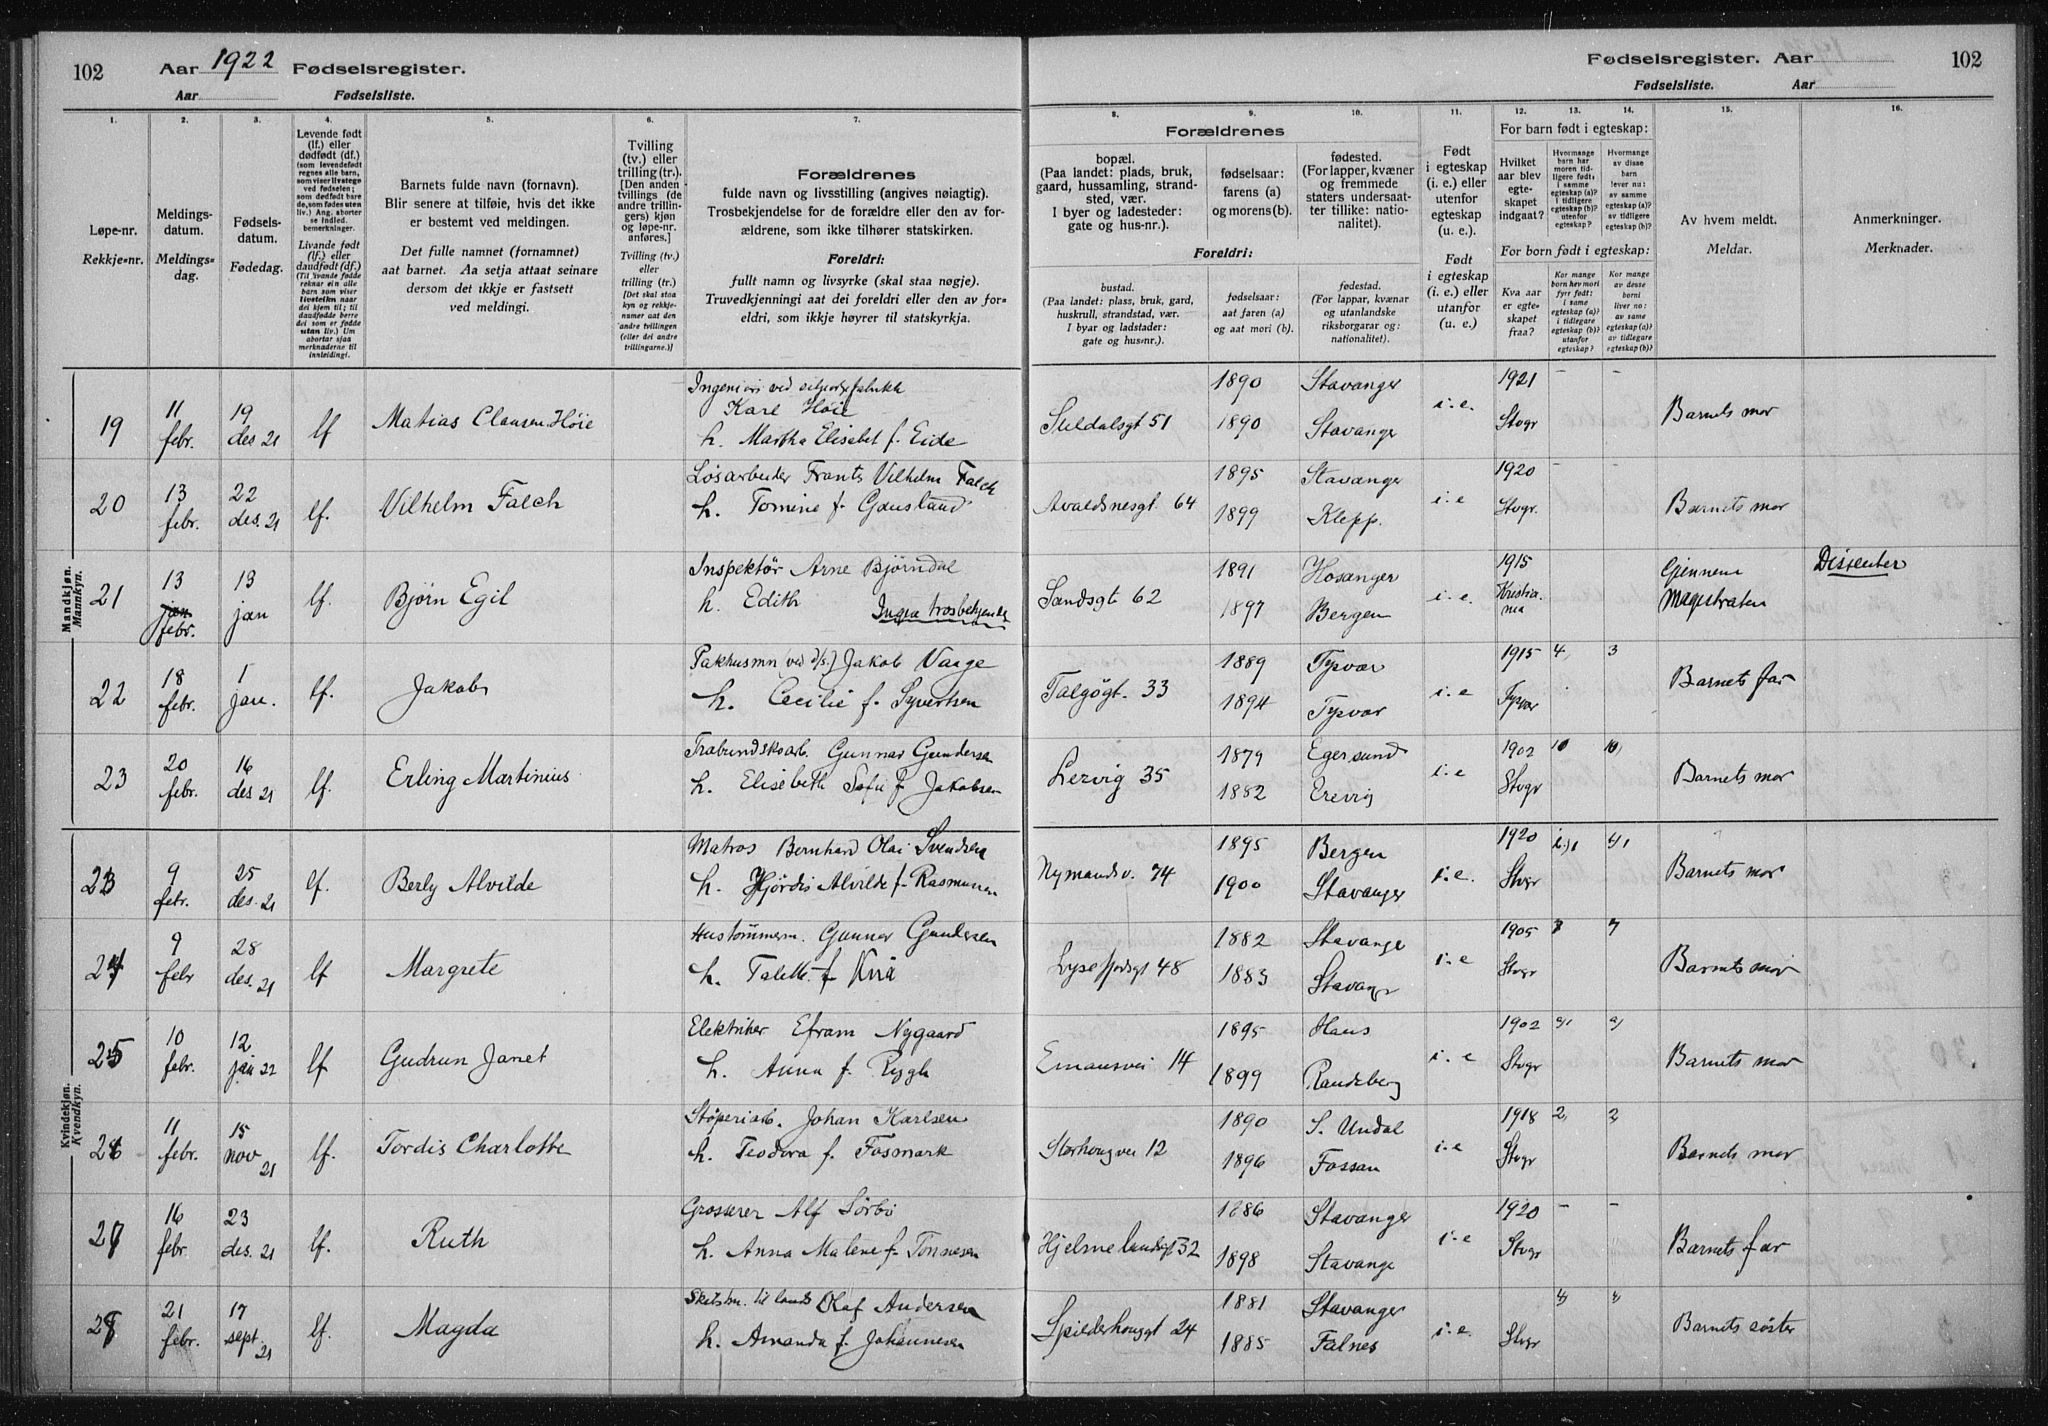 102
Aar 1922 Fødselsregister.
Aar Fødselsliste.
1.
2.
3.
4.
5.
6.
7.
Løpe-nr.
Rekkje-nr.
Meldings-
datum.
Meldings-
dag.
Fødsels-
datum.
Fødedag.
Levende født
(lf.) eller
dødfødt (df.)
(som levendefødt
regnes alle barn,
som viser livstegn
ved fødselen;
som dødfødt barde,
som fødes uten
liv.) Ang. aborter
se indled.
bemerkninger.
Livande født
(lf.) eller
daudfødt (df.)
Barnets fulde navn (fornavn).
Blir senere at tilføie, hvis det ikke
er bestemt ved meldingen.
Det fulle namnet (fornamnet)
aat barnet. Aa setja attaat seinare
dersom det ikkje er fastsett
ved meldingi.
Tvilling
(tv.) eller
trilling (tr.)
[Den anden
tvillings (de
andre trillin-
gers) kjøn
og løpe-nr.
anføres.]
Tvilling (tv.)
eller
trilling (tr.)
[Det skal staa
kyn og rekkje-
numer aat den
andre tvillingen
(eller dei andre
trillingarne.)]
Forældrenes
fulde navn og livsstilling (angives nøiagtig).
Trosbekjendelse for de forældre eller den av for-
ældrene, som ikke tilhører statskirken.
Foreldri:
fullt namn og livsyrke (skal staa nøgje).
Truvedkjenningi aat dei foreldri eller den av for-
eldri, som ikkje høyrer til statskyrkja.
Mandkjøn.
Mannkyn.
19
11
febr.
19
des 21
lf
Matias Clausen Høie
Ingeniør ved
Karl Høie
h. Martha Elisabet f. Eide
20
13
febr.
22
des. 21
lf.
Vilhelm Falch
Løsarbeider Frants Vilhelm Falch
h. Tomine f. Gausland
21
13
jan
febr.
13
jan
lf.
Bjørn Egil
Inspektør Arne Bjørndal
h. Edith Ingen trosbekjendelse
22
18
febr.
1
jan.
lf.
Jakob
Pakhusmn (ved d/s.) Jakob Vaage
h. Cecilie f. Syvertsen
23
20
febr.
16
des 21
lf.
Erling Martinius
Gunnar Gundersen
h. Elisabeth Sofie f Jakobsen
Kvindekjøn.
Kvendkyn.
23
9
febr.
25
des. 21
lf.
Berly Alvilde
Matros Bernhard Olai Svendsen
h. Hjördis Alvilde f. Rasmussen
24
9
febr
28
des. 21
lf
Margrete
Hustømmerm. Gunnar Gundersen
h. Talette f Kviå
25
10
febr.
12
jan 22
lf
Gudrun Janet
Elektriker Efram Nygaard
h. Anna f. Rygh
26
11
febr.
15
nov 21
lf.
Tordis Charlotte
Støperiarb. Johan Karlsen
h. Teodora f. Fosmark
27
16
febr.
23
des. 21
lf.
Ruth
Grosserer Alf Sørbø
h. Anna Malene f. Tønnesen
28
21
febr.
17
sept. 21
lf.
Magda
Olaf Andersen
h. Amanda f. Johannesen
Fødselsregister. Aar
102
Fødselsliste. Aar
8.
9.
10.
11.
12.
13.
14.
15.
16.
Forældrenes
bopæl.
(Paa landet: plads, bruk,
gaard, hussamling, strand-
sted, vær.
I byer og ladesteder:
gate og hus-nr.).
fødselsaar:
farens (a)
og morens (b).
fødested.
(For lapper, kvæner
og fremmede
staters undersaat-
ter tillike: natio-
nalitet).
Foreldri:
bustad.
(Paa landet: plass, bruk, gard,
huskrull, strandstad, vær.
I byar og ladstader:
gate og hus-nr.).
fødselsaar:
aat faren (a)
og aat mori (b).
fødestad.
(For lappar, kvænar
og utanlandske
riksborgarar og:
nationalitet).
Født
i egteskap
(i. e.) eller
utenfor
egteskap
(u. e.).
Født
i egteskap
(i. e.) eller
utanfor
(u. e.).
For barn født i egteskap:
Hvilket
aar blev
egte-
skapet
indgaat?
Hvormange
barn har
moren tid-
ligere født:
i samme
egteskap (a)?
i tidligere
egteskap (b)?
utenfor
egteskap?
Hvormange
av disse
barn
lever nu:
av samme
egteskap (a)?
av tidligere
egteskap (b)?
For born født i egteskap:
Kva aar
er egte-
skapet
fraa?
Kor mange
born hev mori
fyrr født:
i same
egteskap (a)?
i tidlegare
egteskap (b)?
utanfor
egteskap?
Kor mange
av desse
borni
liver no:
av same
egteskap (a)?
av tidlegare
egteskap (b)?
Av hvem meldt.
Meldar.
Anmerkninger.
Merknader.
Suldalsgt 51
1890
1890
Stavanger
Stavanger
i. e.
1921
Stvgr
-
-
Barnets mor
Avaldsnesgt. 64
1895
1899
Stavanger
Klepp.
i. e
1920
Stvgr.
-
-
Barnets mor
Sandsgt 62
1891
1897
Hosanger
Bergen
i. e.
1915
Kristia-
nia
-
-
Gjennem
Magistraten
Dissenter
Talgøgt. 33
1889
1894
Tysvær
Tysvær
i. e
1915
Tysvær
4
3
Barnets far
Lervig 35
1879
1882
Egersund
i. e
1902
Stvgr
10
10
Barnets mor
Nymandsv. 74
1895
1900
Bergen
Stavanger
i. e.
1920
Stvgr
Barnets mor
Lysefjordsgt 48
1882
1883
Stavange
Stavang
i. e
1905
Stvgr
7
Barnets mor
Emausvei 14
1895
1899
Haus
Randeberg
i. e
1902
Stvgr
Barnets mor
Storhaugvei 12
1890
1896
S. Undal
Fossan
i. e
1918
Stvgr
2
2
Barnets mor
Hjelmelandsgt 32
1886
1898
Stavanger
Stavange
i. e
1920
Stvgr
-
-
Barnets far
Spilderhauggt 24
1881
1885
Stavanger
Falnes
i. e.
Stvgr
Barnets søster